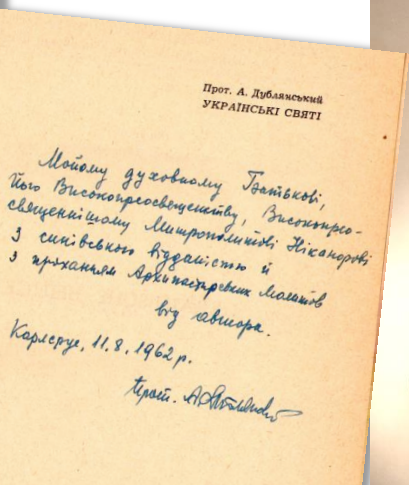 Прот. А. Дублянський
УКРАЇНСЬКІ СВЯТІ
Мойому духовному Батькові,
Його Високопреосвященству, Високопрео-
священнішому Митрополитові Ніканорові
З синівською відданістю й
з проханням Архипастирських Молитов
від автора.
Карлсруе, 11.8.1962 р.
Прот. А. Дублянський